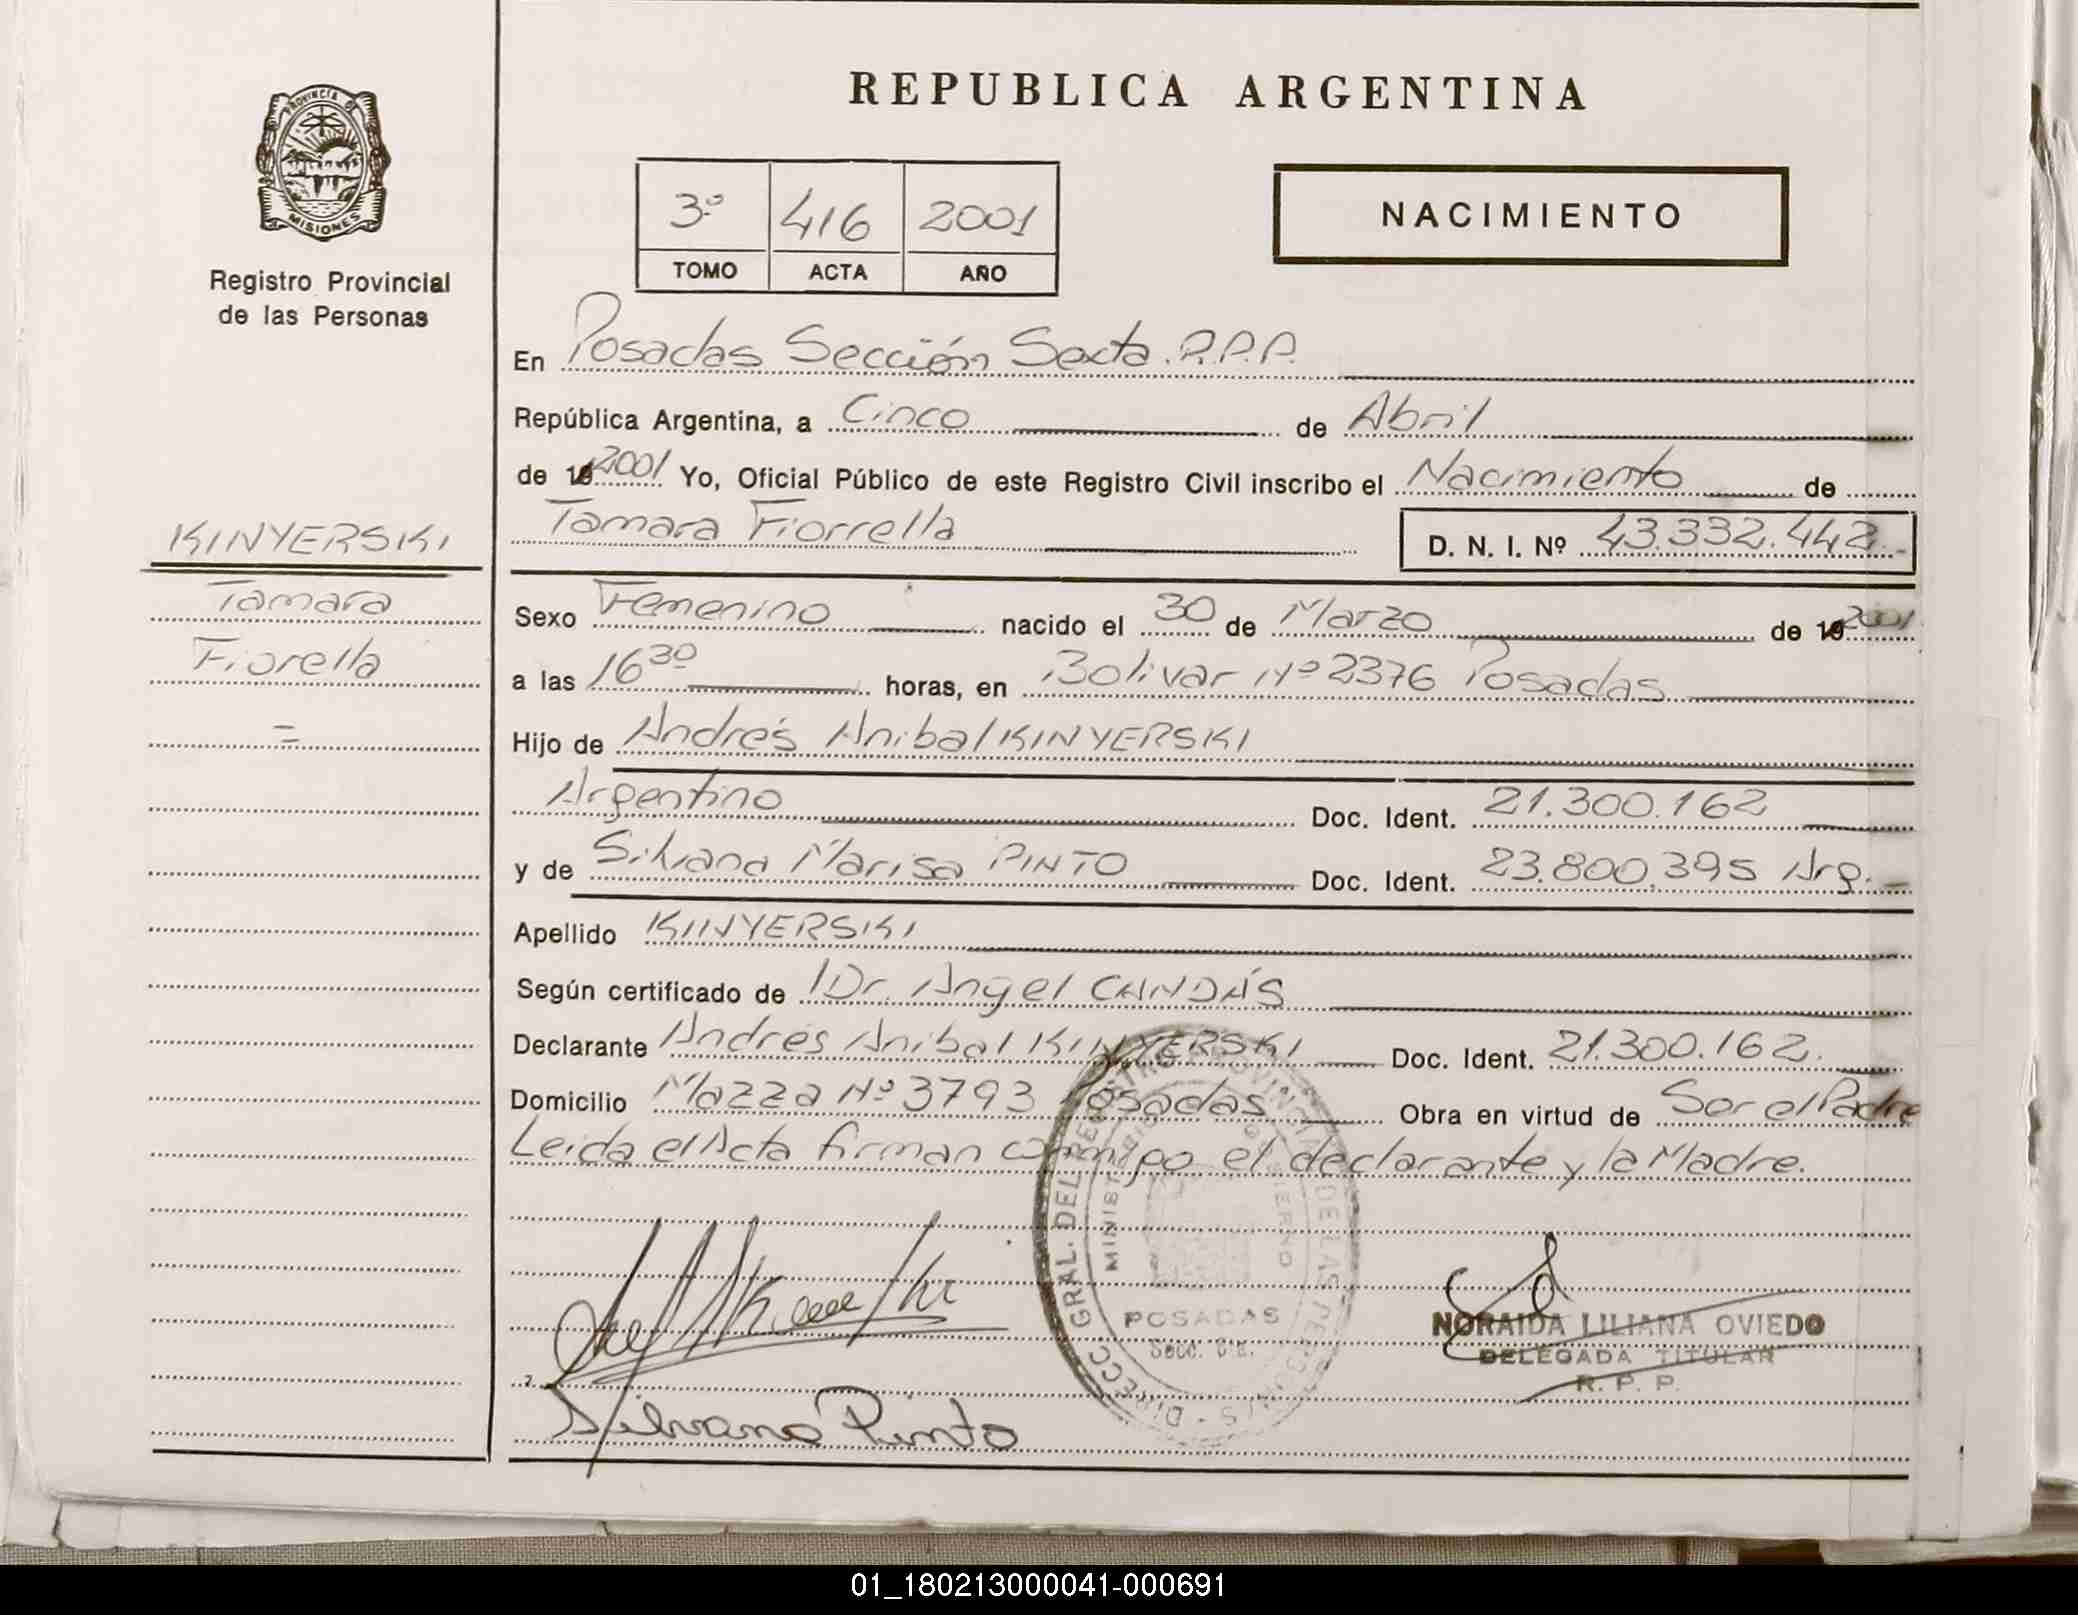 REPUBLICA ARGENTINA
PROVINCIA DE MISIONES
Registro Provincial
de las Personas
3º 416 2001
TOMO ACTA AÑO
NACIMIENTO
En Posadas Sección Sexta. R.P.P.
República Argentina, a Cinco de Abril
de 19 2001 Yo, Oficial Público de este Registro Civil inscribo el Nacimiento de
Tamara Fiorrella D. N. I. Nº 43.332.442.-
KINYERSKI
Tamara
Fiorella
=
Sexo Femenino nacido el 30 de Marzo de 19 2001
a las 16 30 horas, en Bolivar Nº 2376 Posadas
Hijo de Andrés Anibal KINYERSKI
Argentino Doc. Ident. 21.300.162
y de Silvana Marisa PINTO Doc. Ident. 23.800.395 Arg.-
Apellido KINYERSKI
Según certificado de Dr. Angel CANDÁS
Declarante Andrés Anibal KINYERSKI Doc. Ident. 21.300.162.
Domicilio Mazza Nº 3793 Posadas Obra en virtud de Ser el Padre
Leida el Acta firman conmigo el declarante y la Madre.
DIRECC. GRAL. DEL REGISTRO PROVINCIAL DE LAS PERSONAS
MINISTERIO DE GOBIERNO
POSADAS
Secc. 6ta.
Silvana Pinto
NORAIDA LILIANA OVIEDO
DELEGADA TITULAR
R. P. P.
01_180213000041-000691